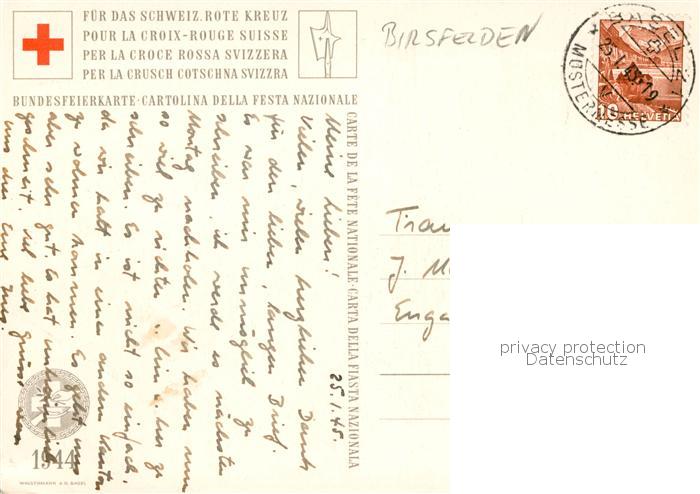 FÜR DAS SCHWEIZ. ROTE KREUZ
POUR LA CROIX-ROUGE SUISSE
PER LA CROCE ROSSA SVIZZERA
PER LA CRUSCH COTSCHNA SVIZZRA
BUNDESFEIERKARTE · CARTOLINA DELLA FESTA NAZIONALE
CARTE DE LA FÊTE NATIONALE · CARTA DELLA FIASTA NAZIONALA
BIRSFELDEN
BASEL 2
MUSTERMESSE
10 HELVETIA
25.1.45.
Meine Lieben!
Vielen, vielen herzlichen Dank
für den lieben, langen Brief.
Es war mir unmöglich zu
schreiben, ich werde es nächsten
Montag nachholen. Wir haben nun
so viel zu
schreiben. Es ist nicht so einfach,
da wir halt in einem andern Kanton
zu wohnen kommen. Es geht uns
aber sehr gut. Es hat
geschneit. Viel liebe Grüsse von
uns
J. M
Enga
privacy protection
Datenschutz
1944
WASSERMANN A.G. BASEL